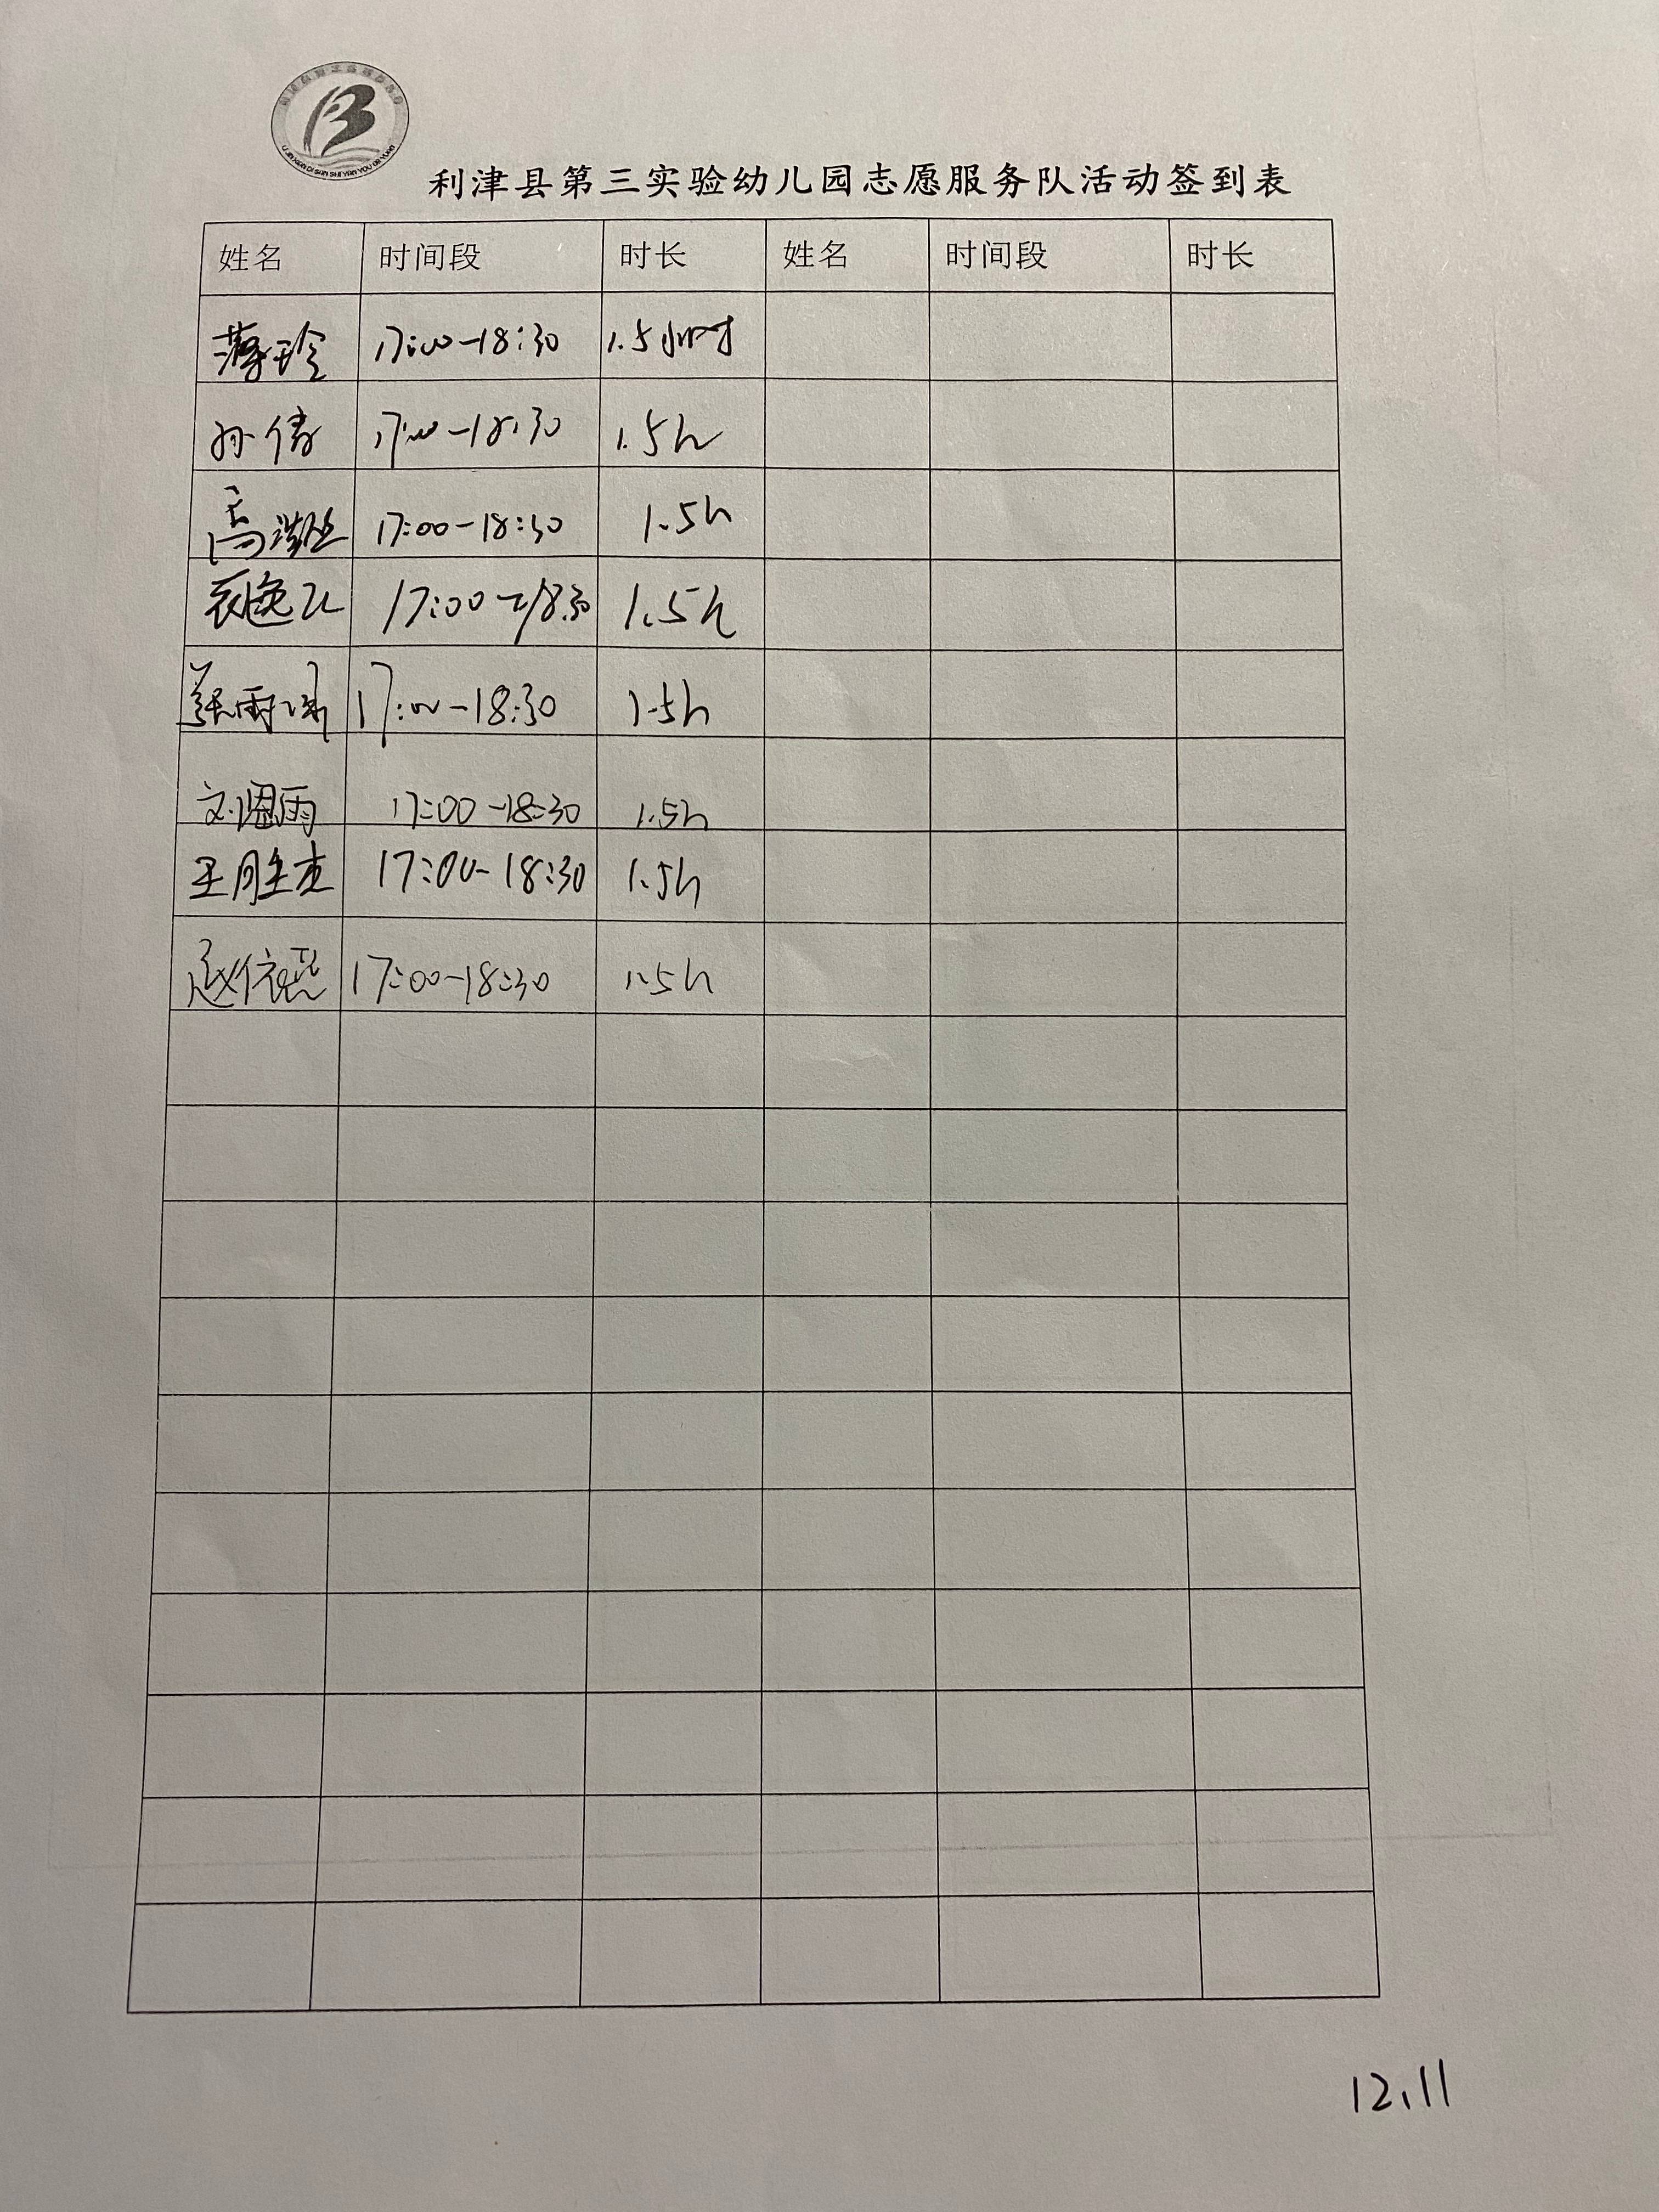 利津县第三实验幼儿园志愿服务队活动签到表
姓名 时间段 时长 姓名 时间段 时长
薄玲 17:00-18:30 1.5小时
孙倩 17:00-18:30 1.5h
高 17:00-18:30 1.5h
17:00-18:30 1.5h
张雨 17:00-18:30 1.5h
刘恩雨 17:00-18:30 1.5h
王胜杰 17:00-18:30 1.5h
赵依 17:00-18:30 1.5h
12.11